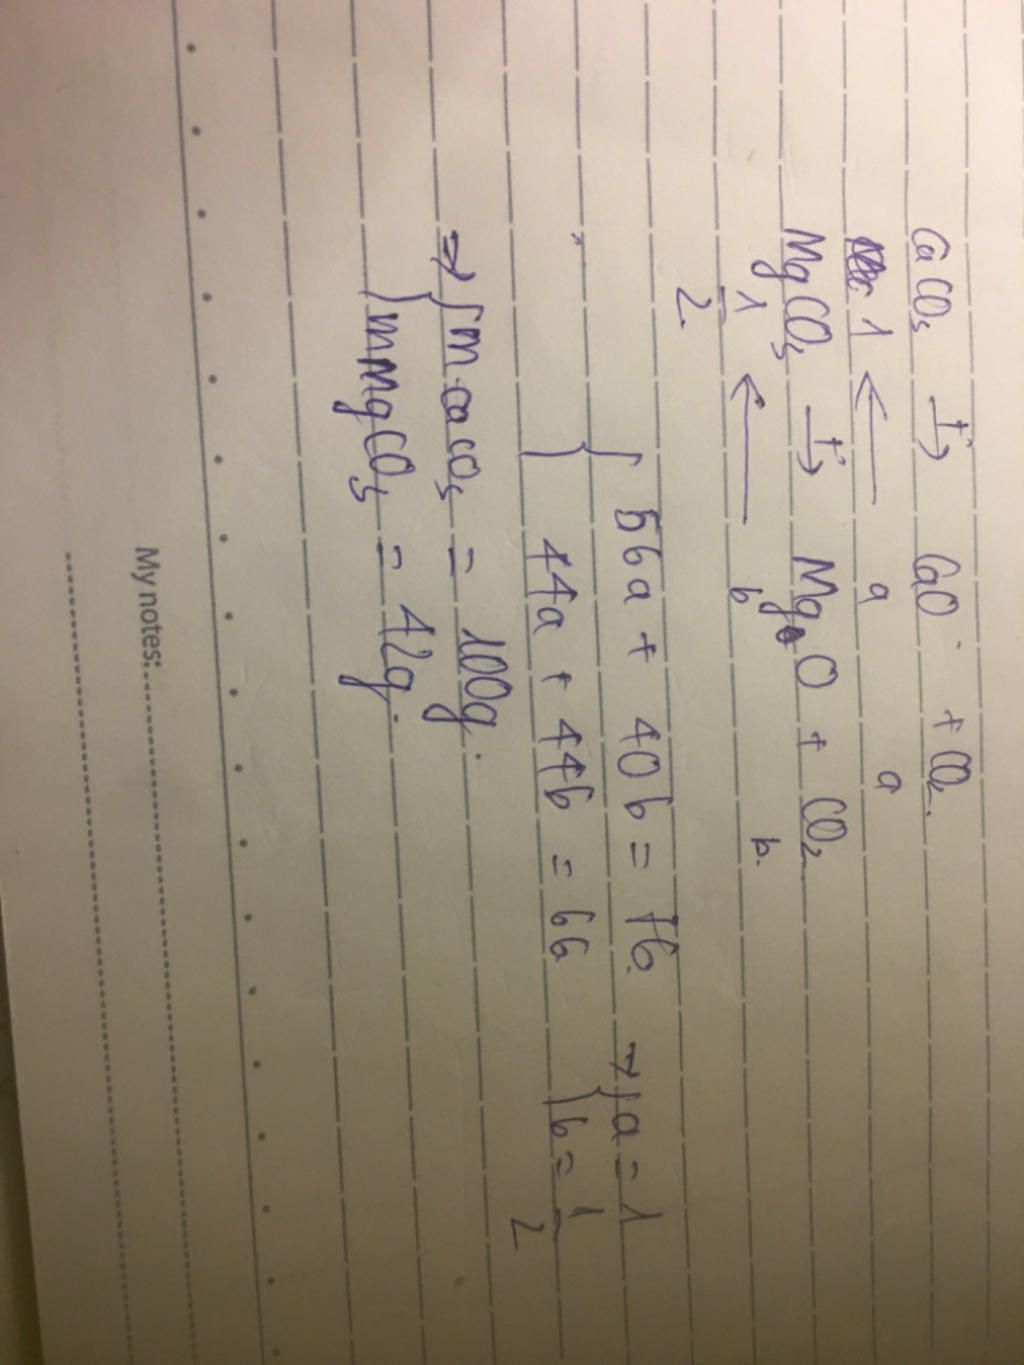 CaCO3 t°→ CaO + CO2.
1 ← a a
MgCO3 t°→ MgO + CO2
1/2 ← b b.
{ 56a + 40b = 76. ⇒ { a = 1
{ 44a + 44b = 66 { b = 1/2
⇒ { mCaCO3 = 100g.
{ mMgCO3 = 42g.
My notes: